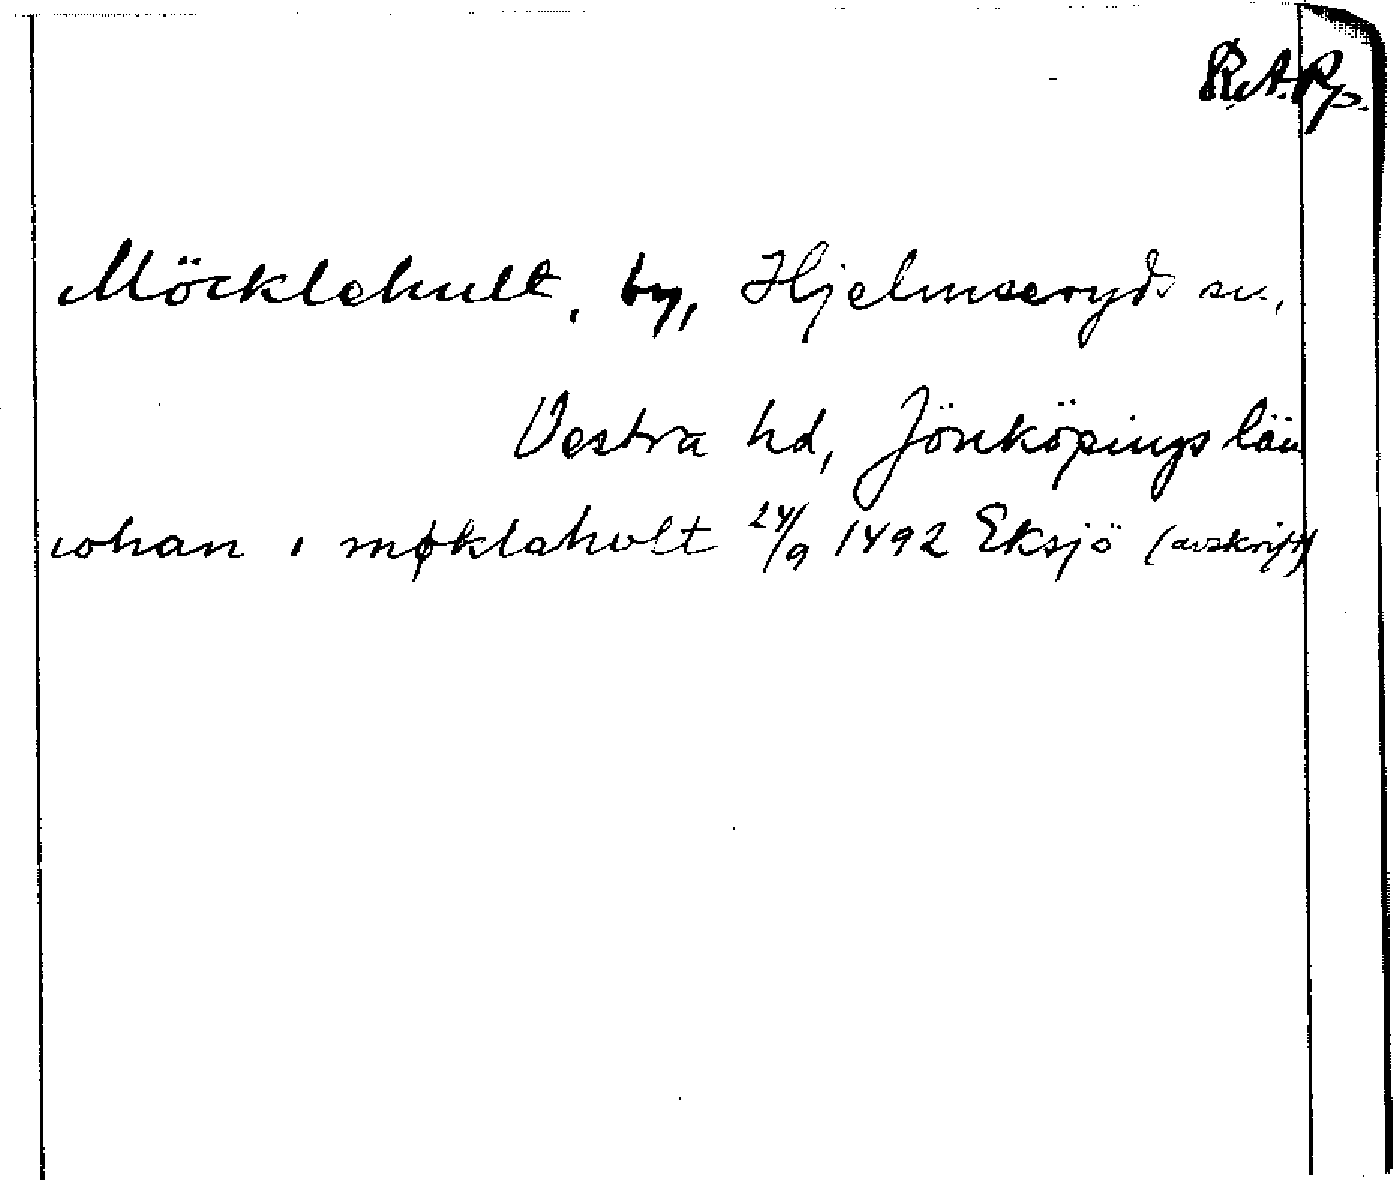 R.A.Pp.
Möcklehult, by, Hjelmseryds sn,
Vestra hd, Jönköpings län
iohan i møklaholt 24/9 1492 Eksjö (avskrift)